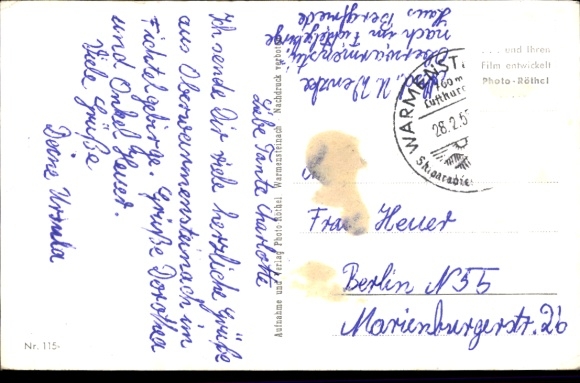 Liebe Tante Charlotte
Ich sende Dir viele herzliche Grüße
aus Oberwarmensteinach im
Fichtelgebirge. Grüße Dorothea
und Onkel Heuer.
Viele Grüße
Deine Ursula
U. Wencke
Oberwarmenstei
nach im Fichtelgebirge
Haus Bergfriede
Aufnahme und Verlag Photo Röthel Warmensteinach Nachdruck verboten
WARMENST
28.2.5
Skiparadies
. . . und Ihren
Film entwickelt
Photo-Röthel
Frau Heuer
Berlin N55
Marienburgerstr. 26
Nr. 115-